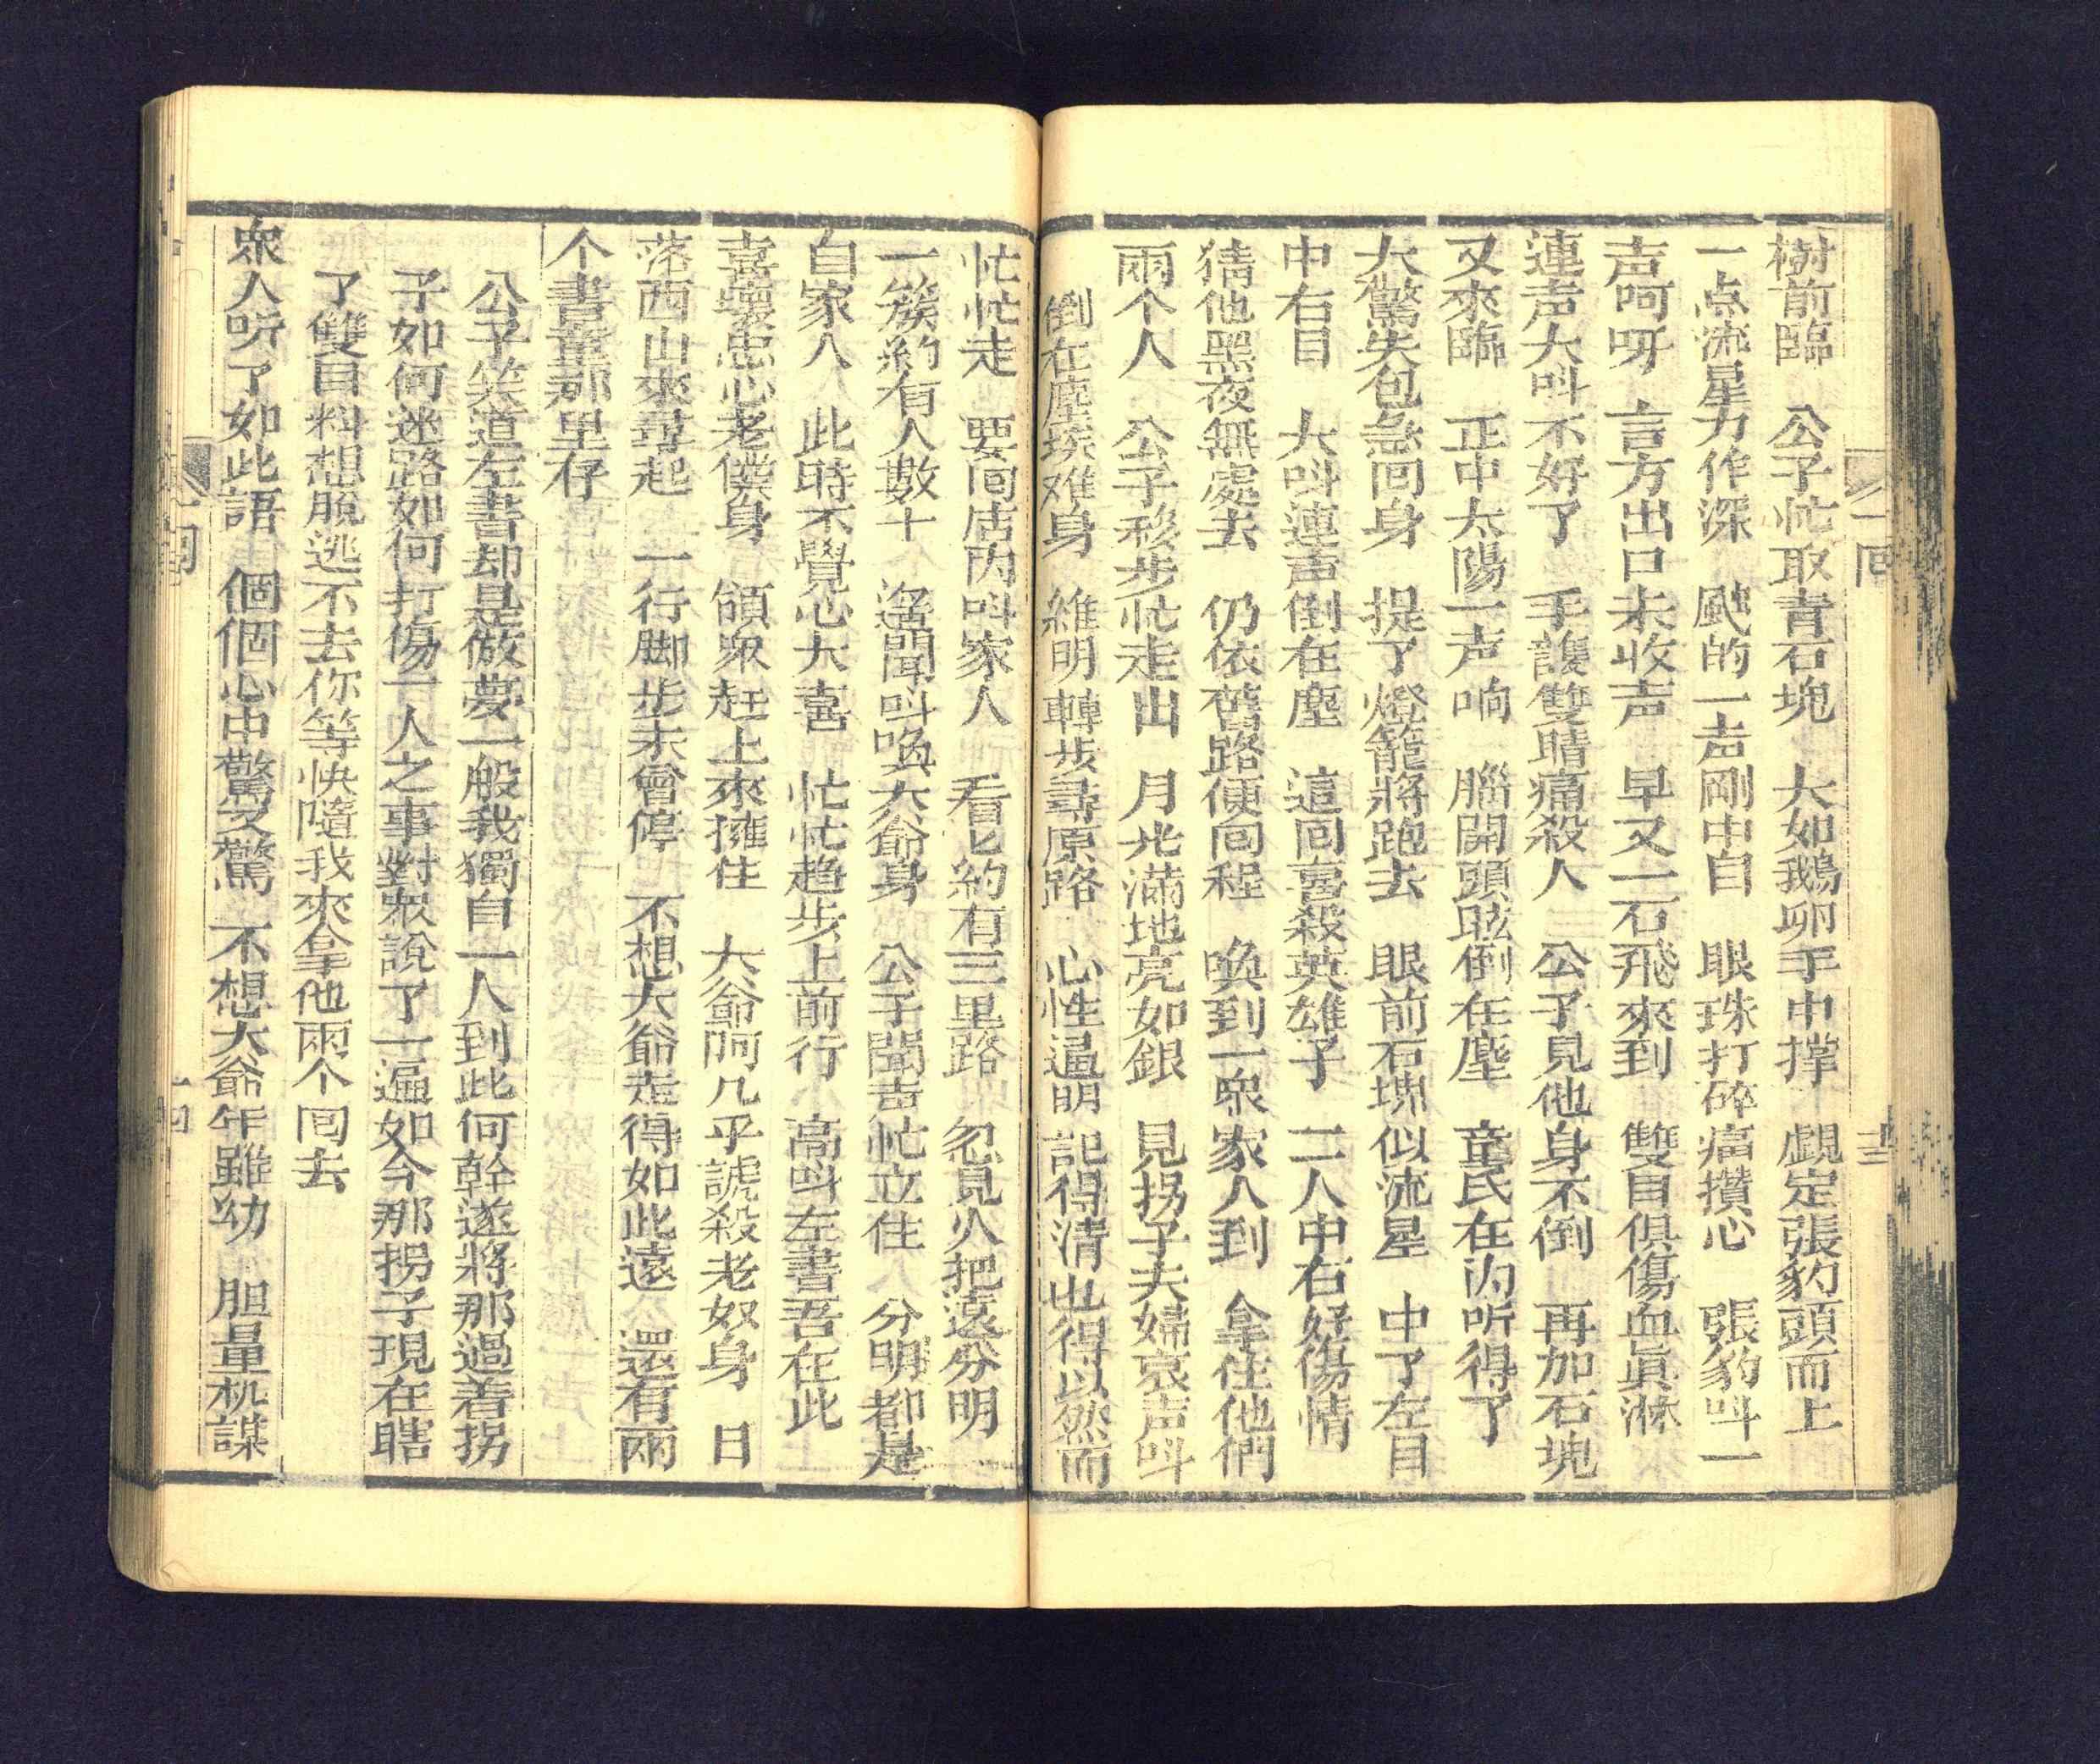 一回
十三
樹前臨　公子忙取青石塊　大如鵝卵手中撑　覷定張豹頭而上
一点流星力作深　颼的一声剛中目　眼珠打碎痛攢心　張豹呌一
声呵呀　言方出口未收声　早又一石飛來到　雙目俱傷血眞淋
連声大呌不好了　手護雙睛痛殺人　公子見他身不倒　再加石塊
又來臨　正中太陽一声响　腦開頭眩倒在塵　童氏在內听得了
大驚失包急回身　提了燈籠將跑去　眼前石塊似流星　中了左目
中右目　大呌連声倒在塵　這回喜殺英雄子　二人中石好傷情
猜他黑夜無處去　仍依舊路便回程　喚到一衆家人到　拿住他們
兩个人　公子移步忙走出　月光滿地亮如銀　見拐子夫婦哀声呌
倒在塵埃难身　維明轉步尋原路　心性逼明記得清　出得以然而
忙忙走　要回店內呌家人　看匕約有三里路　忽見火把遠分明
一簇約有人數十　遙聞呌喚大爺身　公子聞言忙立住　分明都是
自家人　此時不覺心大喜　忙忙趋步上前行　高呌左書吾在此
喜壞忠心老僕身　領衆赶上來擁住　大爺阿几乎諕殺老奴身　日
落西山來尋起　一行脚步未曾停　不想大爺走得如此遠　還有兩
个書童那里存
公子笑道左書却是做夢一般我獨自一人到此何幹遂將那過善拐
子如何迷路如何打傷一人之事對衆說了一遍如今那拐子現在瞎
了雙目料想脫逃不去你等快隨我來拿他兩个回去
衆人听了如此語　個個心中驚又驚　不想大爺年雖幼　胆量机謀
一回
十四